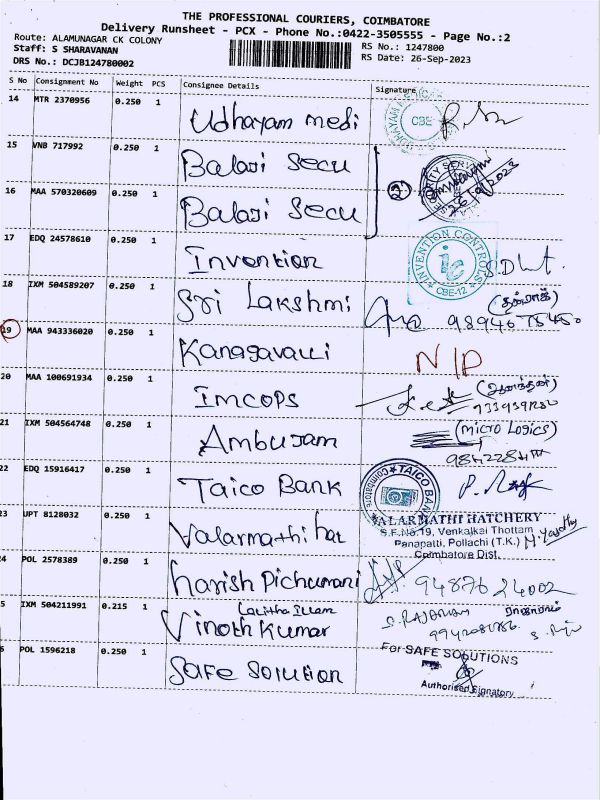 THE PROFESSIONAL COURIERS, COIMBATORE
Delivery Runsheet - PCX - Phone No.:0422-3505555 - Page No.:2
Route: ALAMUNAGAR CK COLONY
Staff: S SHARAVANAN
DRS No.: DCJB124780002
RS No.: 1247800
RS Date: 26-Sep-2023
S No Consignment No Weight PCS Consignee Details Signature
14 MTR 2370956 0.250 1 Udhayam medi
CBE
15 VNB 717992 0.250 1 Balaji Secu
16 MAA 570320609 0.250 1 Balaji Secu
17 EDQ 24578610 0.250 1 Invention
INVENTION CONTROLS
ic
CBE-12
18 IXM 504589207 0.250 1 Sri Lakshmi
19 MAA 943336020 0.250 1 Kanagavalli N/P
20 MAA 100691934 0.250 1 Imcops
21 IXM 504564748 0.250 1 Ambujam (MICRO LOGICS)
22 EDQ 15916417 0.250 1 Taico Bank
TAICO BANK
23 UPT 8128032 0.250 1 Valarmathi hat
VALARMATHI HATCHERY
S.F.No.19, Venkalkai Thottam
Panapatti, Pollachi (T.K.)
Coimbatore Dist.
POL 2578389 0.250 1 harish Pichumani 94876 24002
IXM 504211991 0.215 1 Lalitha Illam
Vinoth Kumar
POL 1596218 0.250 1 Safe Solution
For SAFE SOLUTIONS
Authorised Signatory